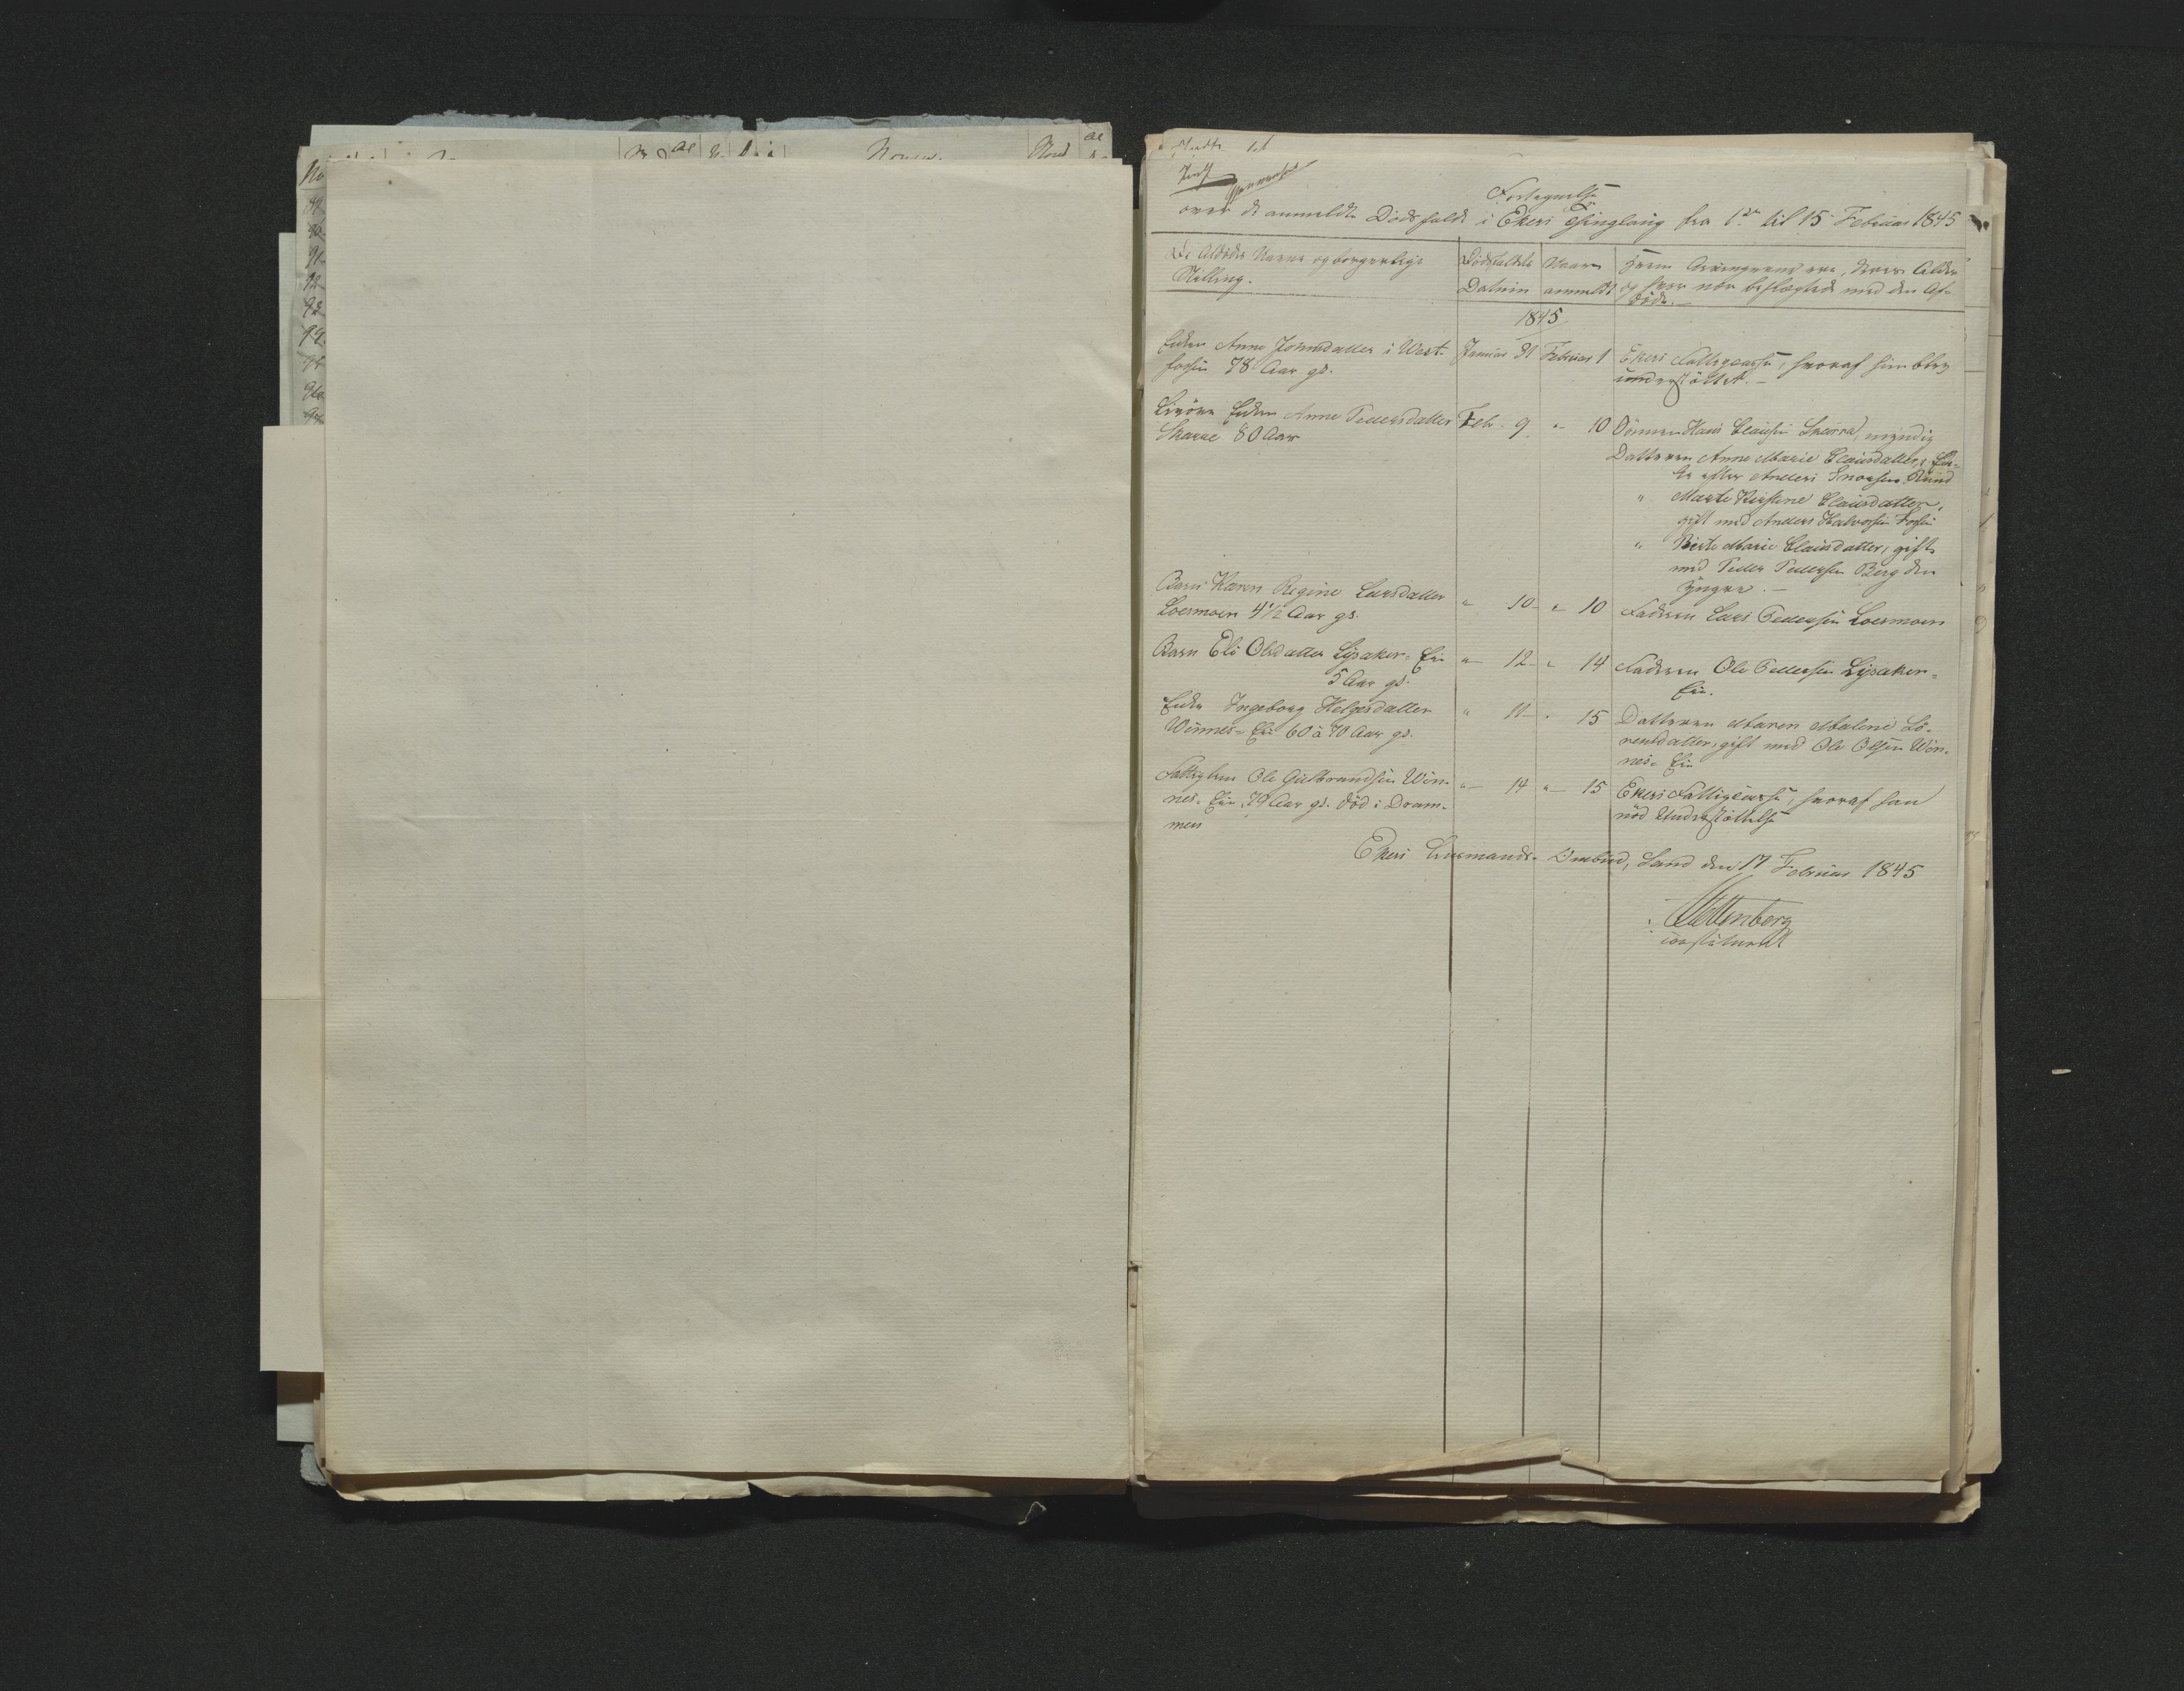 Fortegnelse
over de anmeldte Dödsfald i Ekers Thinglaug fra 1de til 15 Februar 1845
De Afdødes Navne og borgerlige
Stilling.
Dödsfaldets
Datum
Naar
anmeldt
Hvem Arvingerne ere, deres Alder
og hvor nær beslægtede med den Af-
döde.
1845
Enken Anne Johnsdatter i West-
fossen 78 Aar gl.
Januar 31
Februar 1
Ekers Fattigcasse, hvoraf hun blev
understöttet.
Enken Anne Pedersdatter
80 Aar
Feb. 9
" 10
Sönnen Hans Clausen myndig
Datteren Anne Marie Clausdatter, En-
ke efter Anders Rund
" Marte Kirstine Clausdatter,
gift med Anders Halvorsen Fossen
" Birte Marie Clausdatter, gift
med Peder Pedersen Berg den
yngre.
Barn Karen Regine Larsdatter
Loesmoen 4 1/2 Aar gl.
" 10
" 10
Faderen Lars Pedersen Loesmoen
Barn Eli Olsdatter Lysaker-Eie
5 Aar gl.
" 12
" 14
Faderen Ole Pedersen Lysaker-
Eie.
Enke Ingeborg Helgesdatter
Winnes-Eie 60 à 70 Aar gl.
" 11
" 15
Datteren Maren Malene Lo-
rensdatter, gift med Ole Olsen Win-
nes-Eie
Fattiglem Ole Gulbrandsen Win-
nes-Eie, 79 Aar gl. död i Dram-
men
" 14
" 15
Ekers Fattigcasse, hvoraf han
nöd Understöttelse
Ekers Lensmands-Ombud, Sand den 17 Februar 1845
constitueret